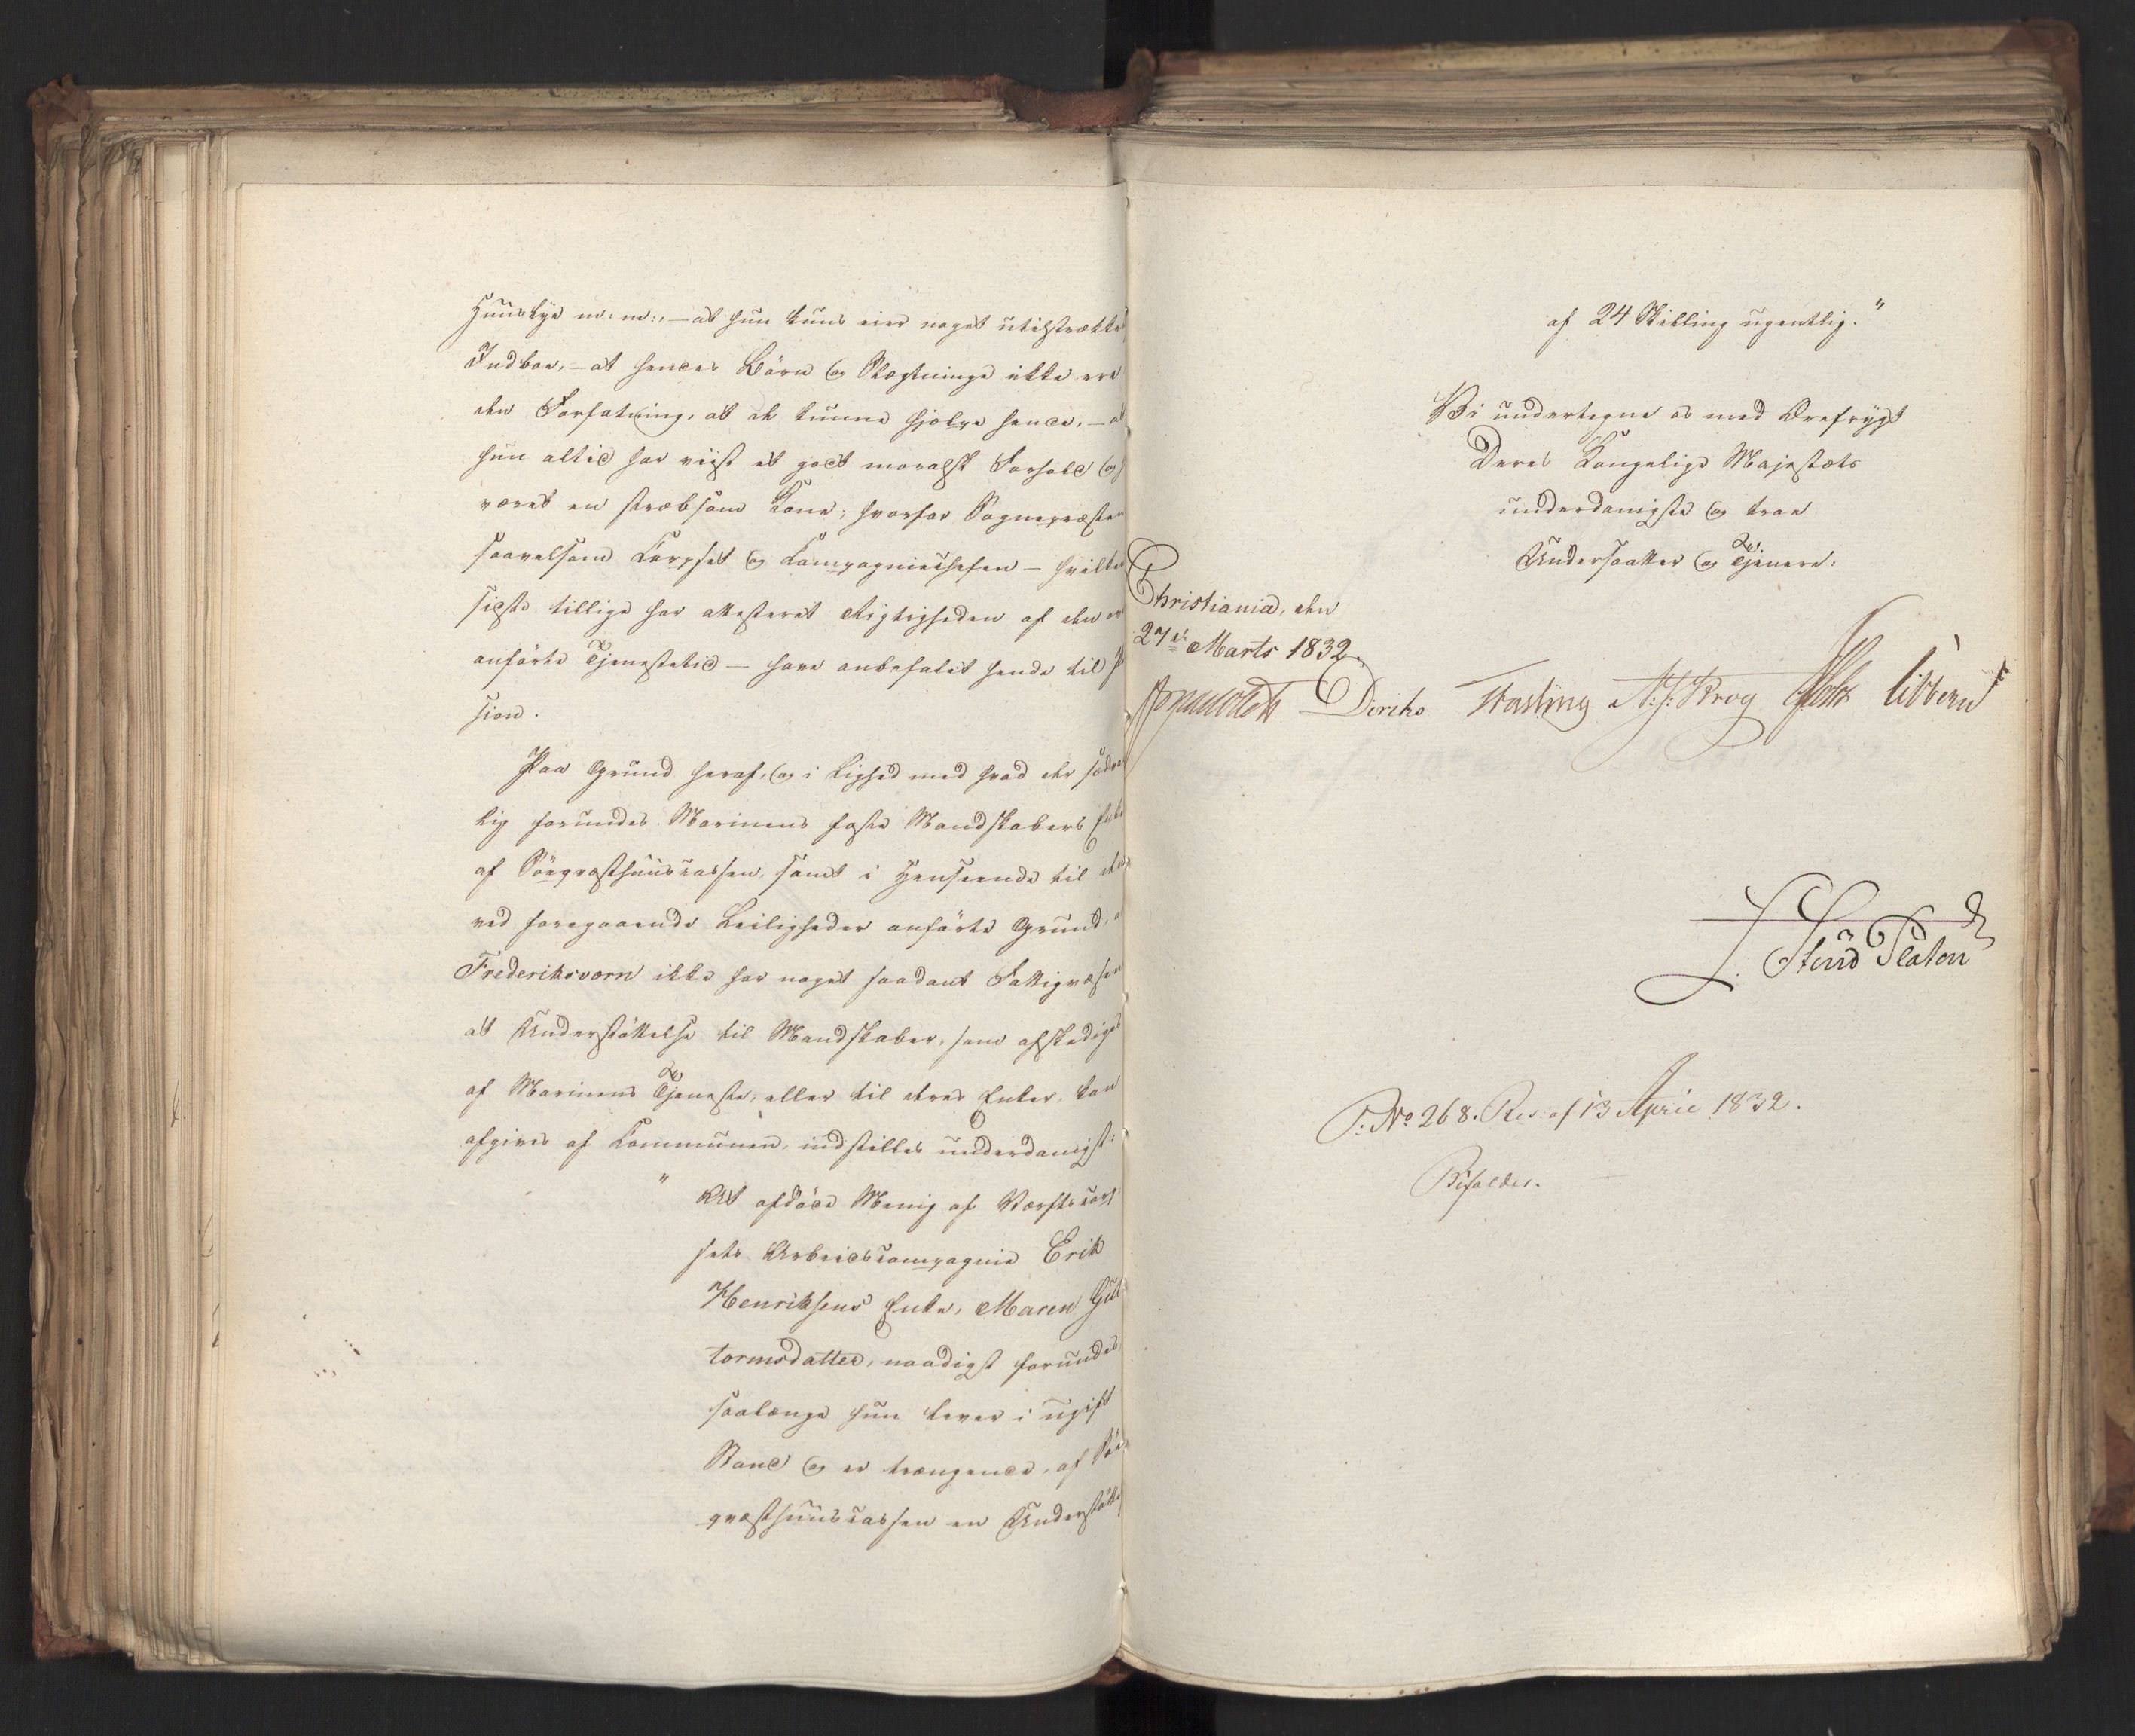 Huuslye m: m:, – at hun kuns eier noget utilstrække
Indboe, – at hendes Börn og Slægtninge ikke ere
den Forfatning, at de kunne hjelpe hende, – a
hun altid har viist et godt moralsk Forhold og
været en stræbsom Kone; hvorfor Sognepræsten
saavelsom Corpset og Compagniechefen – hvilke
sidste tillige har attesteret Rigtigheden af den
anförte Tjenestetid – have anbefalet hende til
sion.
Paa Grund heraf, og i Lighed med hvad der sædvan
lig forundes Marinens faste Mandskabers Enke
af Söeqvæsthuuscassen, samt i Henseende til den
ved foregaaende Leiligheder anförte Grund, a
Frederiksværn ikke har noget saadant Fattigvæsen
at Understöttelse til Mandskaber, som afskediges
af Marinens Tjeneste, eller til deres Enker, kan
afgives af Communen, indstilles underdanigst:
" At afdöde Menig af Værftscorp
sets Arbeidscompagnie Erik
Henriksens Enke, Maren Gut
tormsdatter, naadigst forundes,
saalænge hun lever i ugift
Stand og er trængende, af Söe
qvæsthuuscassen en Understötte
af 24 Skilling ugentlig."
Vi undertegne os med Ærefrygt
Deres Kongelige Majestæts
underdanigste og troe
Undersaatter og Tjenere:
Christiania, den
27de Marts 1832.
Diriks Fasting N: J: Krog Holst Sibbern
L. Stud Platou
P: No 268. Res: af 13 April 1832.
Bifaldes.